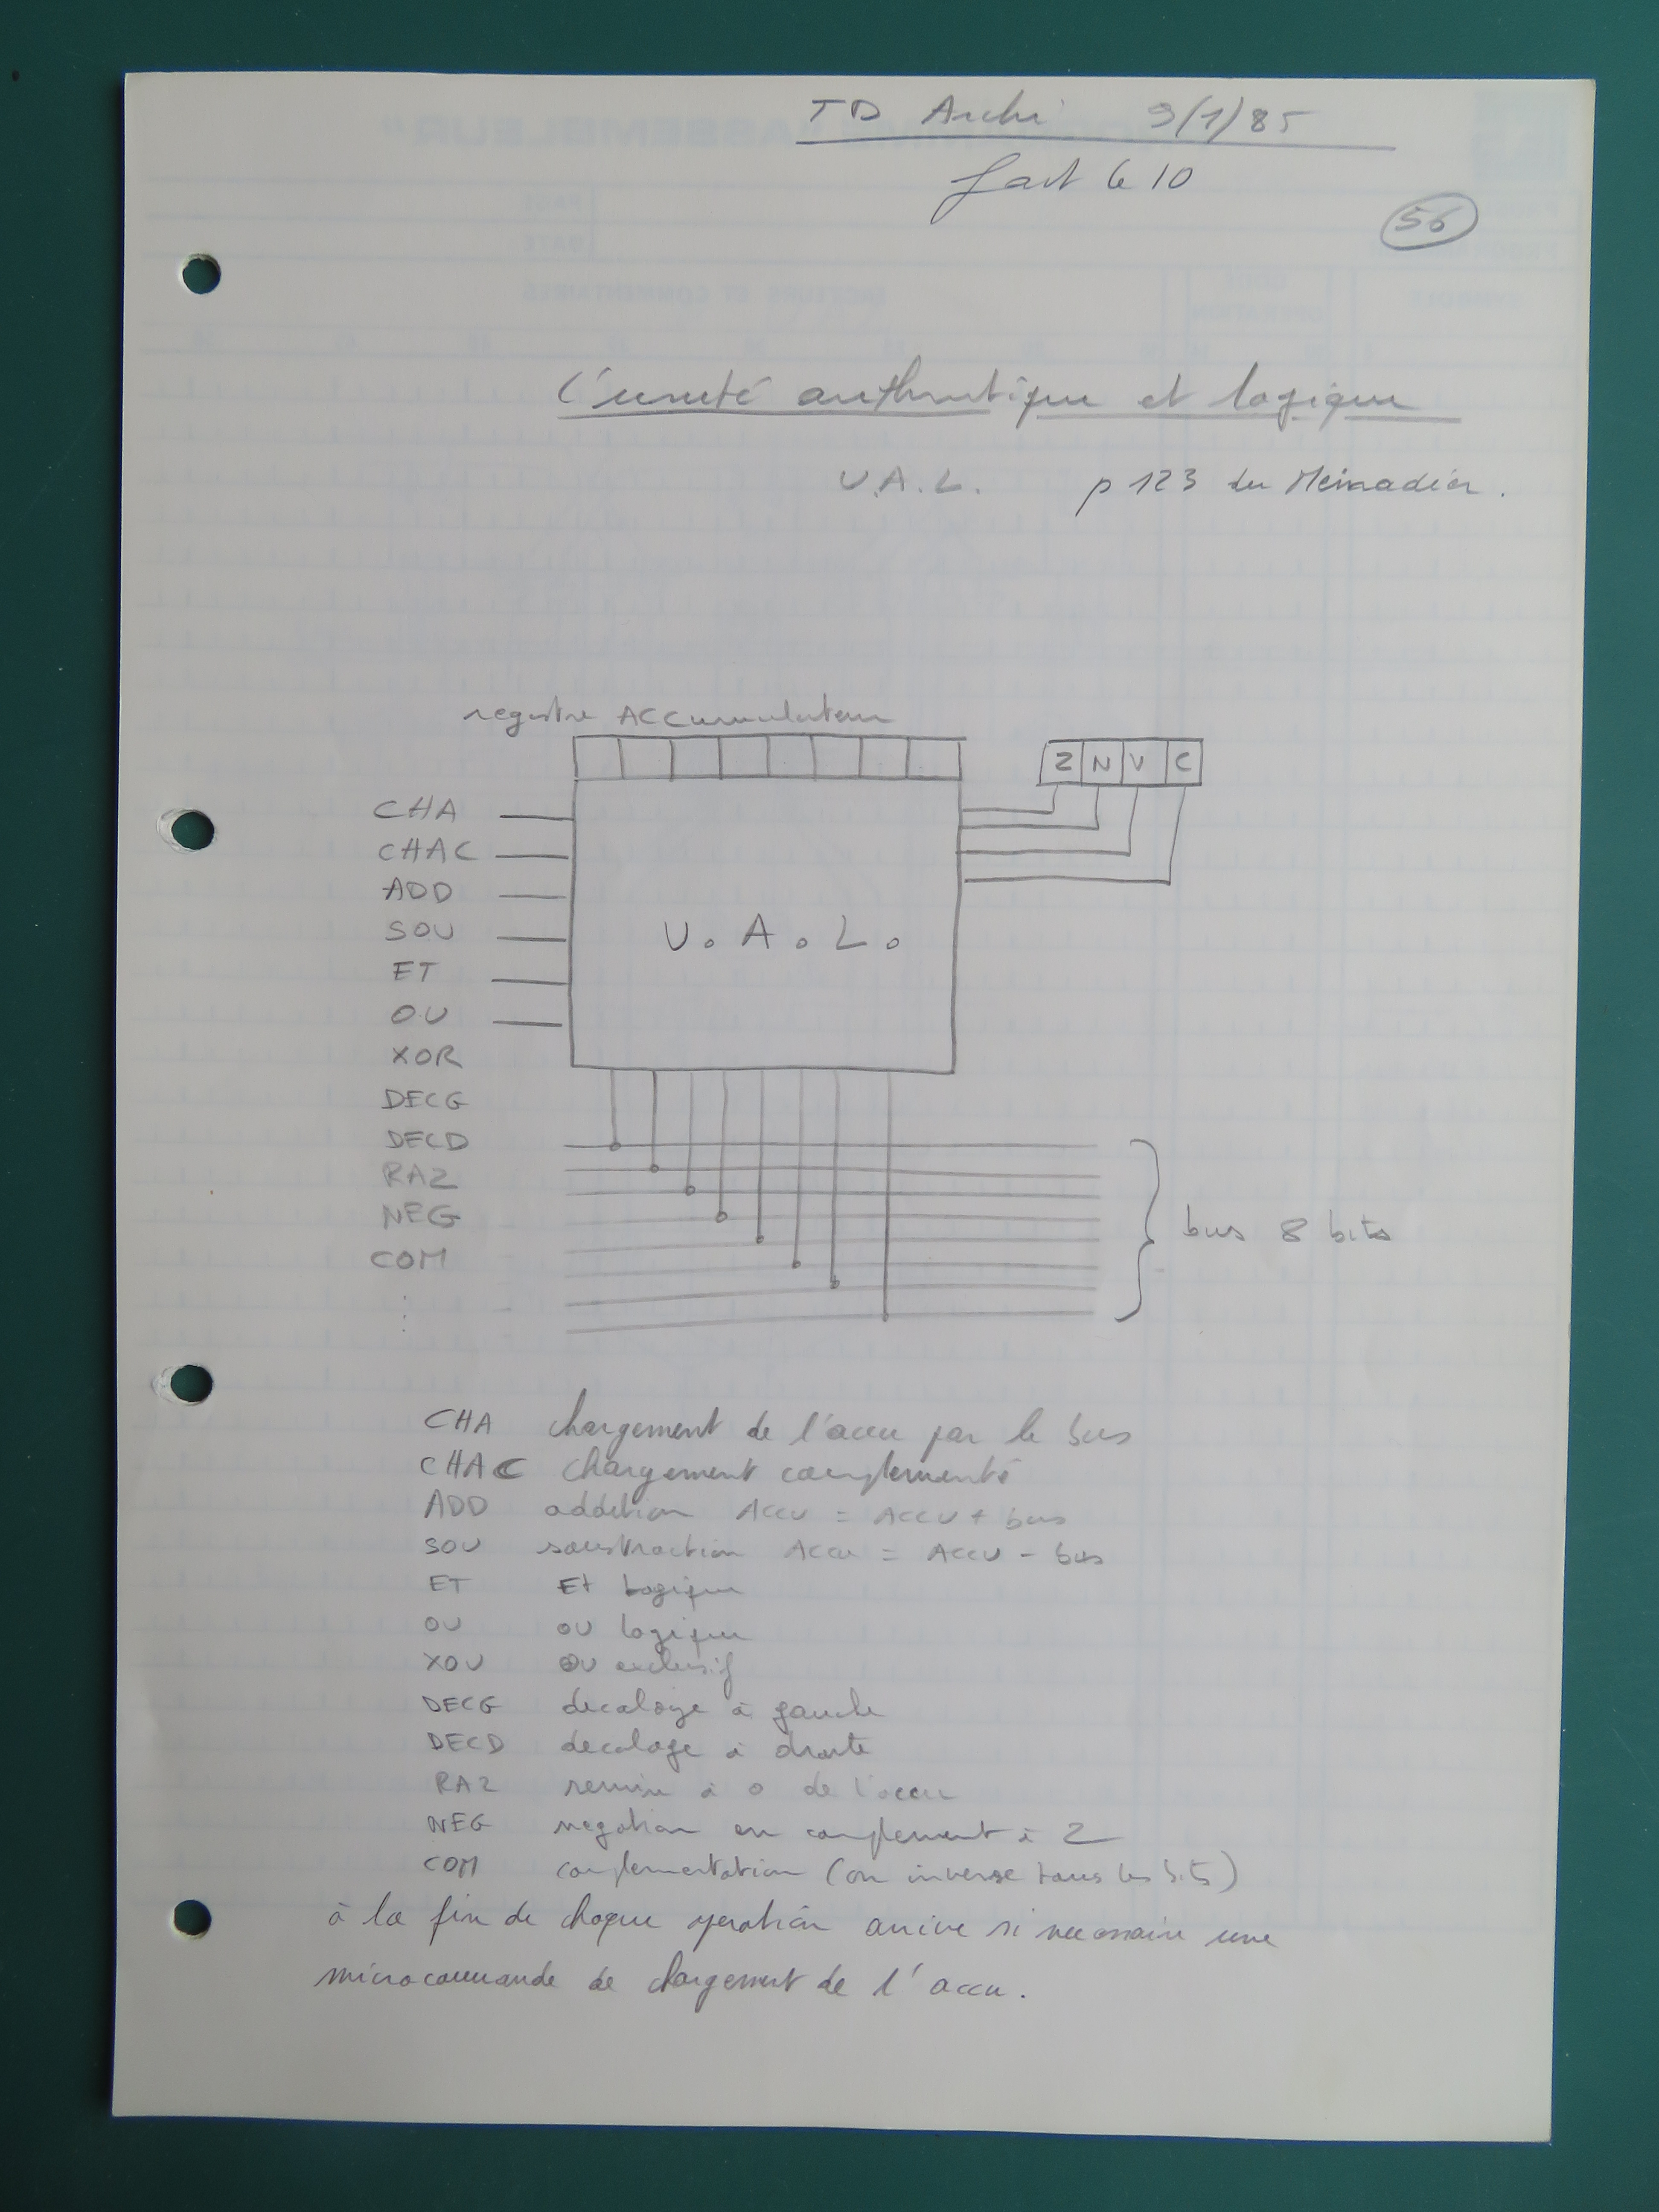 TD Archi 9/1/85
fait le 10
56
L'unité arithmetique et logique
U.A.L. p 123 du Meinadier.
registre ACCumulateur
Z N V C
CHA
CHAC
ADD
SOU
ET
OU
XOR
DECG
DECD
RAZ
NEG
COM
U.A.L.
bus 8 bits
CHA chargement de l'accu par le bus
CHAC chargement complementé
ADD addition Accu = ACCU + bus
SOU soustraction Accu = ACCU - bus
ET Et logique
OU OU logique
XOU OU exclusif
DECG decalage à gauche
DECD decalage à droite
RAZ remise à 0 de l'accu
NEG negation en complement à 2
COM complementation (on inverse tous les bits)
à la fin de chaque operation arrive si necessaire une
microcommande de chargement de l'accu.